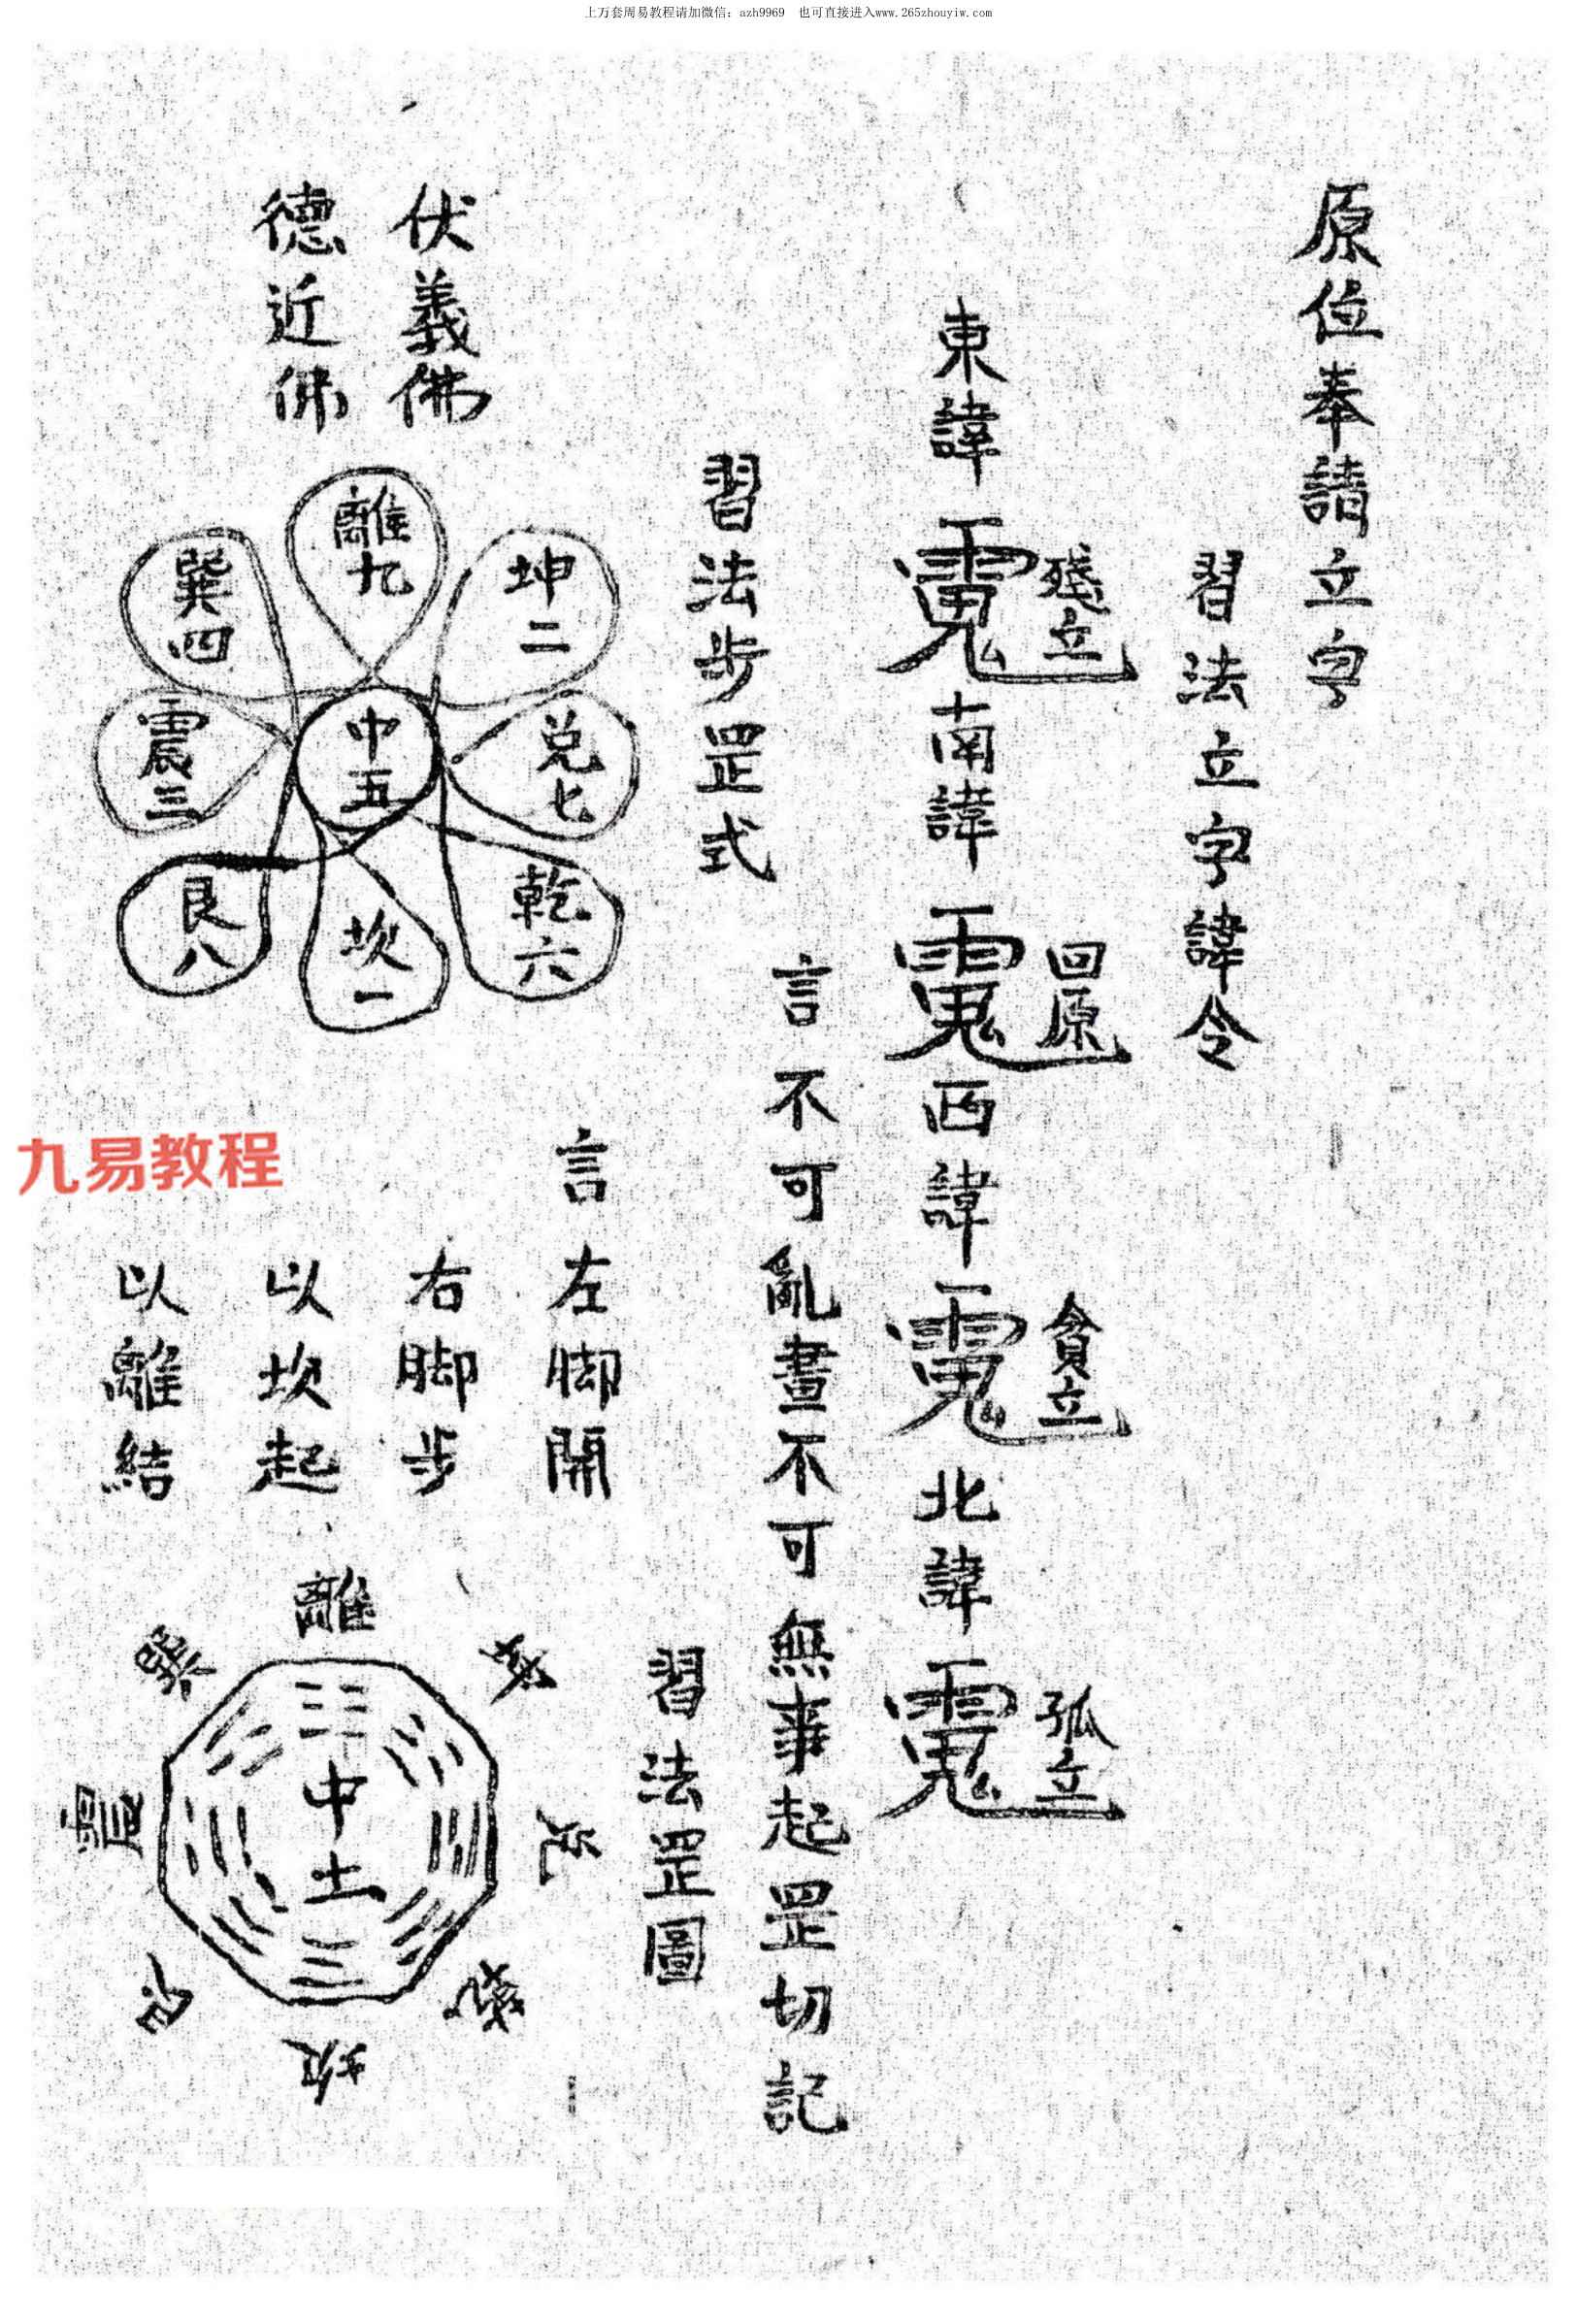 上万套周易教程请加微信：azh9969 也可直接进入www.265zhouyiw.com
原位奉請立字
習法立字諱令
殘立
回原
貪立
孤立
東諱
南諱
西諱
北諱
言不可亂畫不可無事起罡切記
習法步罡式
伏義佛
德近佛
離九
坤二
巽四
中五
兌七
震三
乾六
艮八
坎一
九易教程
言左脚開
右脚步
以坎起
以離結
習法罡圖
離
巽
兌
震
中土
艮
乾
坎